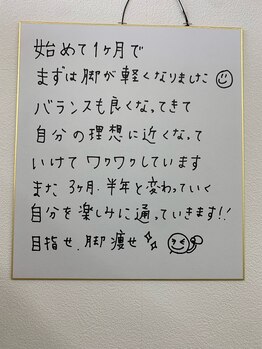 始めて1ヶ月で
まずは脚が軽くなりました
バランスも良くなってきて
自分の理想に近くなって
いけて ワクワクしています
また 3ヶ月.半年と変わっていく
自分を楽しみに通っていきます!!
目指せ.脚痩せ